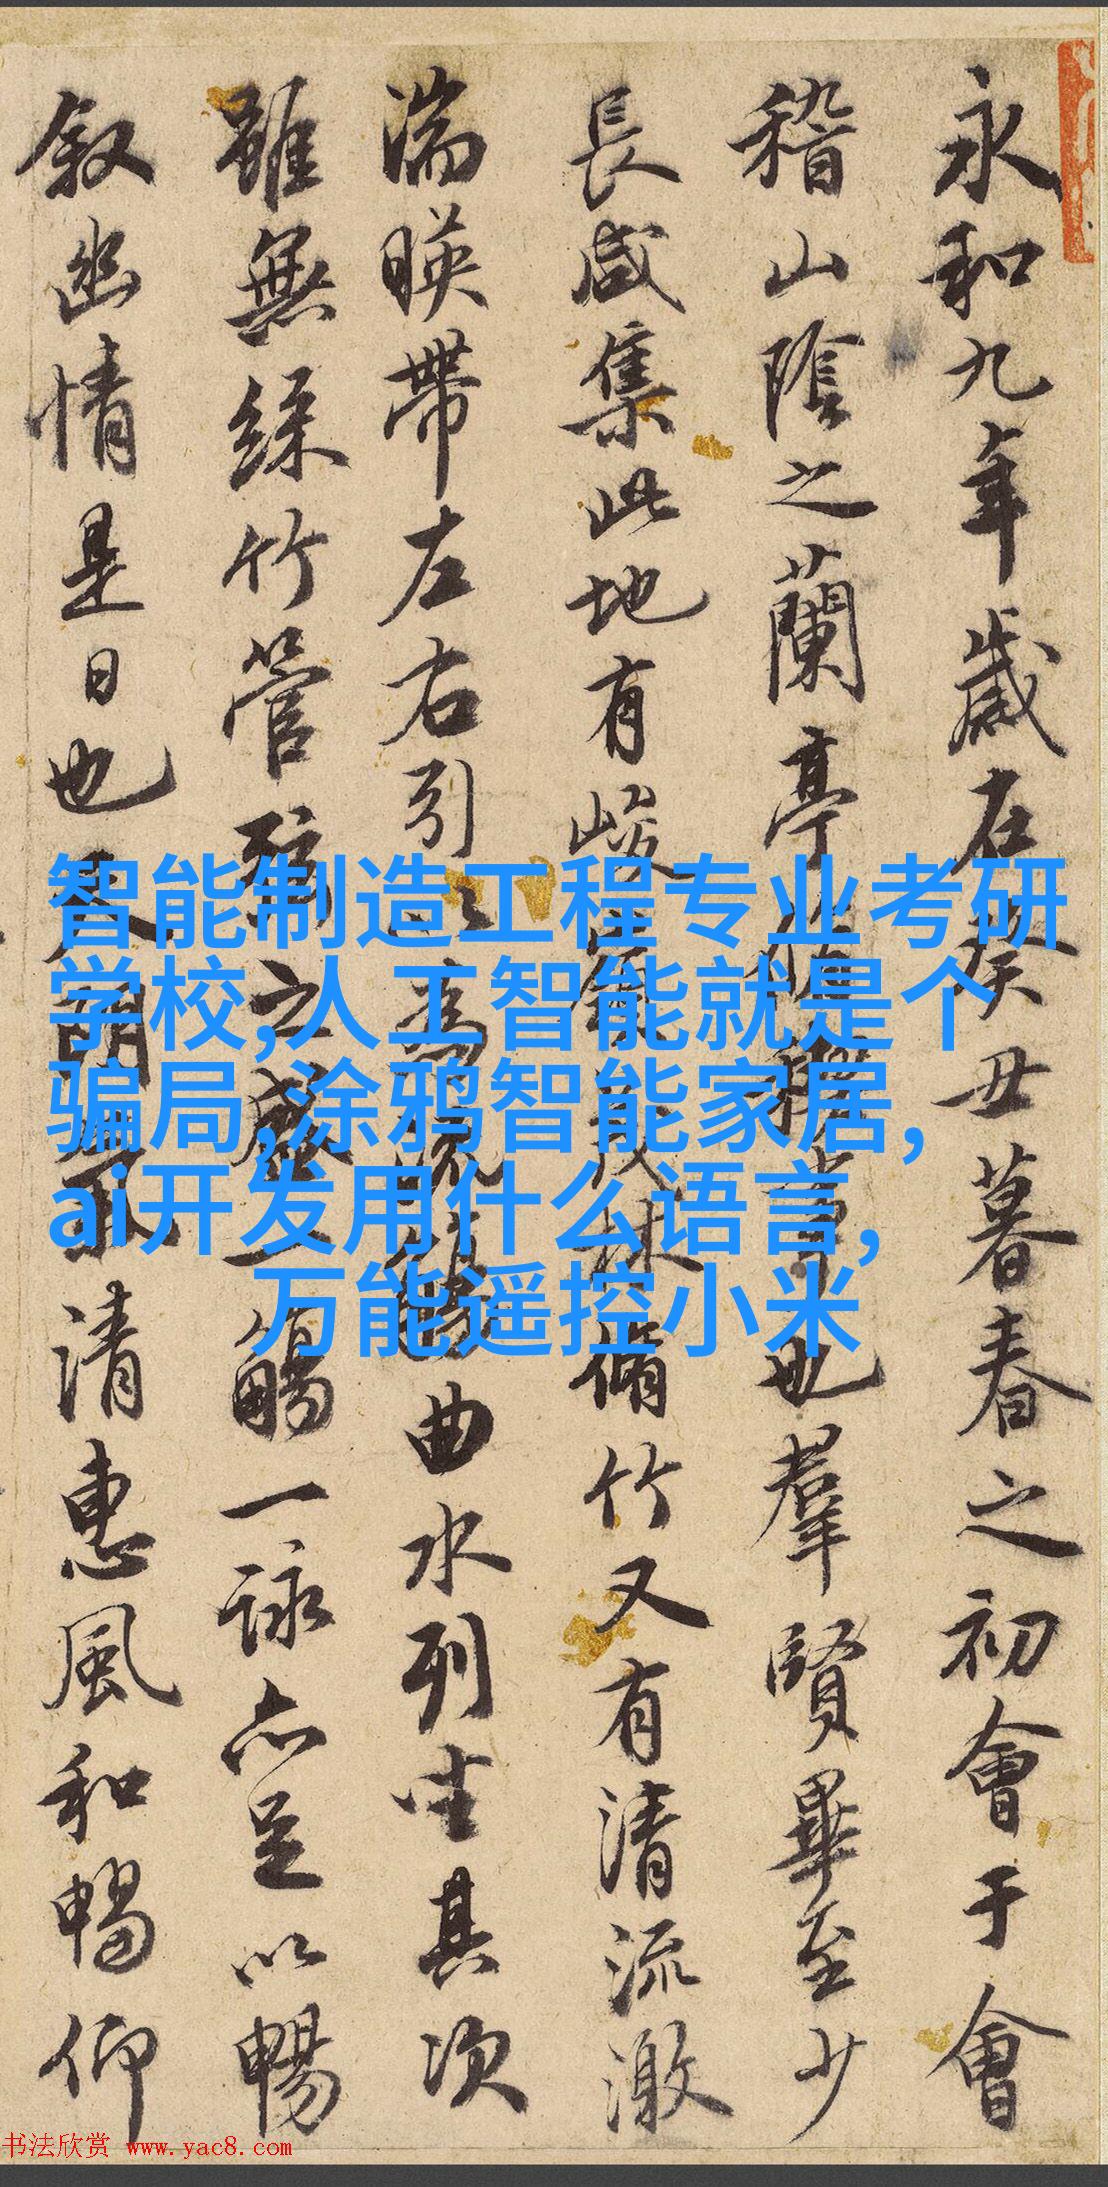 永和九年歲在癸丑暮春之初會于會
稽山陰之蘭亭脩稧事也羣賢畢至少
長咸集此地有峻茂林脩竹又有清流激
湍暎帶左右引以為流觴曲水列坐其次
雖無絲竹管弦之盛一觴一詠亦足以暢
叙幽情是日也天朗氣清惠風和暢仰
智能制造工程专业考研
学校,人工智能就是个
骗局,涂鸦智能家居,
ai开发用什么语言,
万能遥控小米
书法欣赏 www.yac8.com